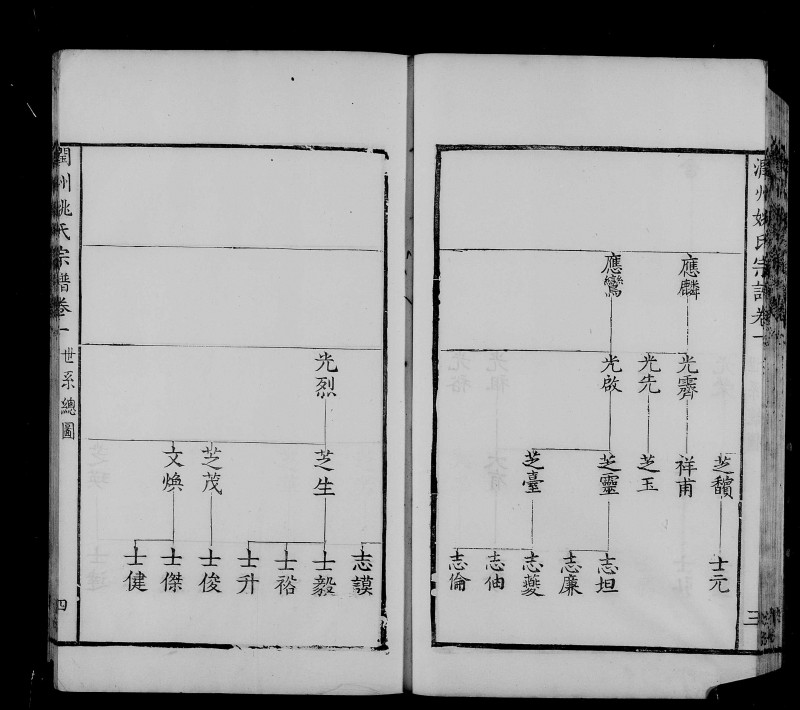 潤州姚氏宗譜卷一
三
應麟
應鸞
光霽
光先
光啟
芝馩
祥甫
芝玉
芝靈
芝臺
士元
志坦
志廉
志夔
志伷
志倫
光烈
芝生
芝茂
文煥
志謨
士毅
士裕
士升
士俊
士傑
士健
潤州姚氏宗譜卷一
世系總圖
四